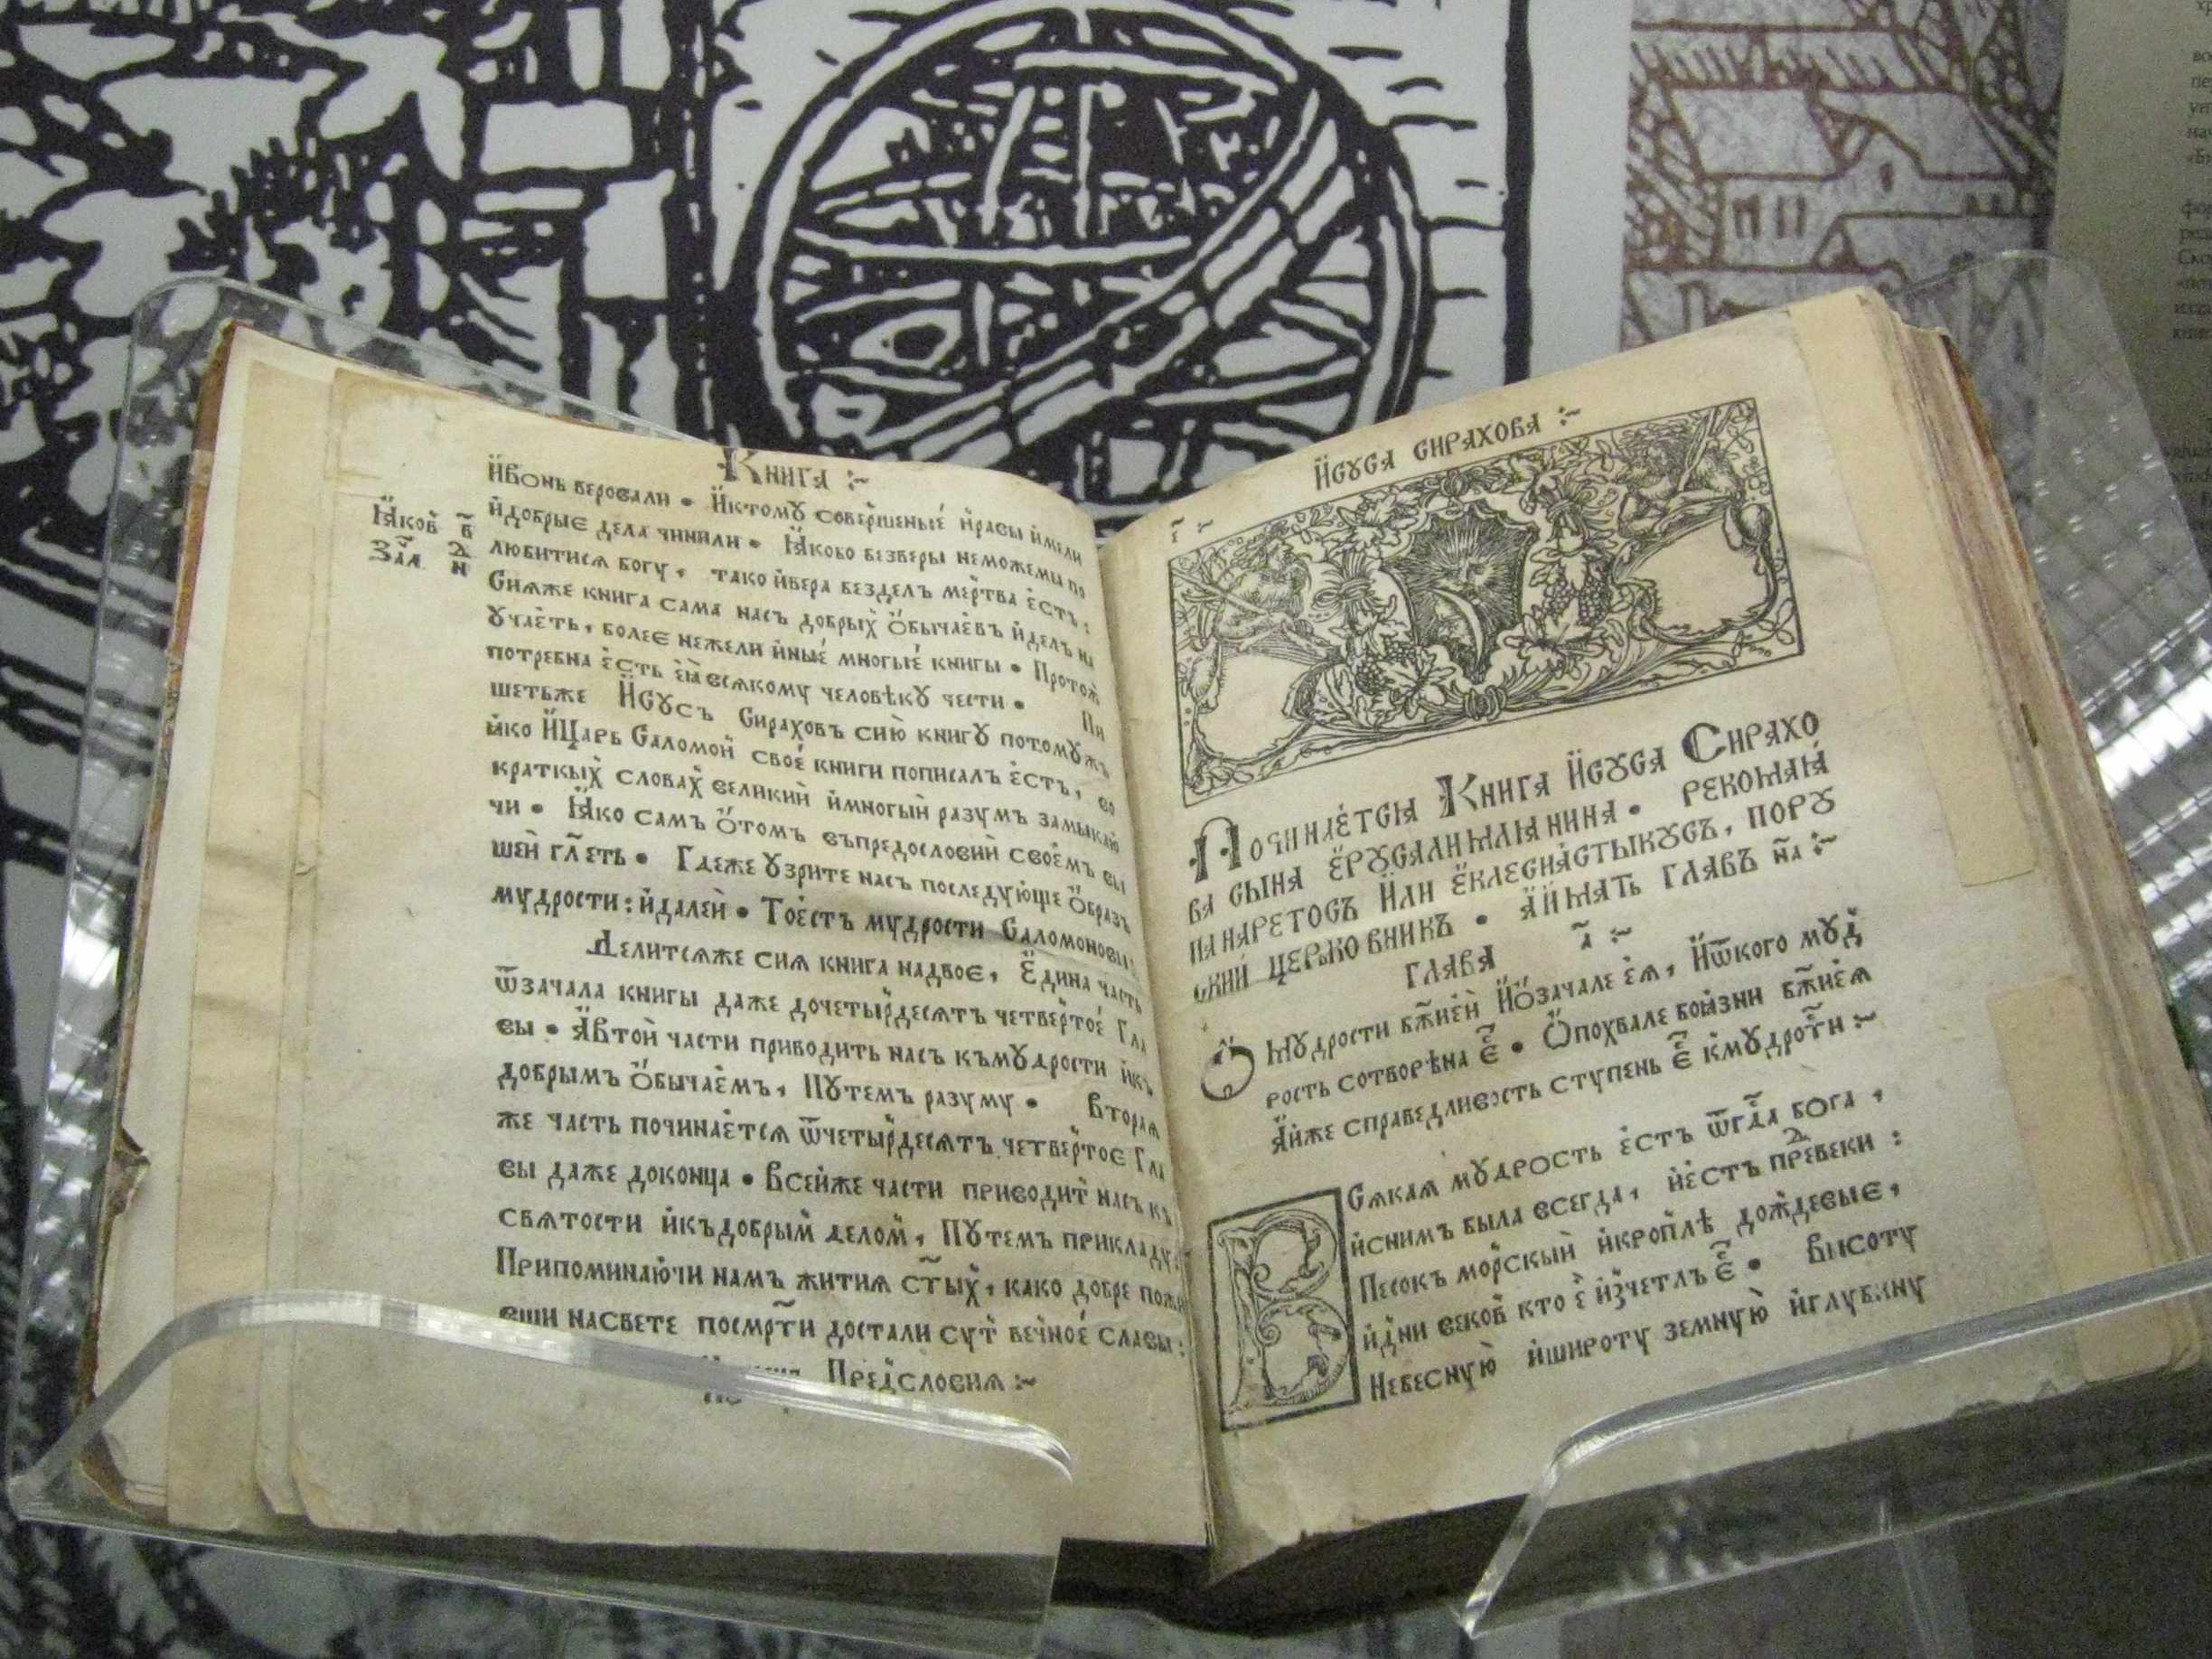 Книга :~
Ꙗ҆коб҃ в҃
За҃л д҃ н
и҆вонь веровали • И҆ктомꙋ соверъшеные́ нравы и҆мели
и҆добрые дела чинили • Ꙗ҆коbo безверы неможемы по
любитисѧ богу, тако и҆вера бездел мертва е҆сть :
Сиꙗже книга сама насъ добрых ѻ҆бычае҆въ и҆дел на
ꙋчае҆ть, более нежели и҆ные́ многые́ книгы • Протож
потребна е҆сть е҆й всѧкому человѣкꙋ чести • Пи
шетьже И҆сꙋсъ Сираховъ сию̀ книгꙋ потомꙋжъ
ꙗко и҆Царь Саломон свое́ книги пописалъ е҆сть, во
краткых словах великий и҆многый разумъ замыкаю
чи • Ꙗ҆ко самъ ѻ҆томъ въпредословий свое҆мъ вы
шей гл҃еть • Гдеже ꙋзрите насъ последую̀ще ѻ҆бразъ
мудрости : и҆далей • Тое҆стъ мудрости Саломоновы :
Делитсѧже сиѧ книга надвое, Е҆дина часть
ѿзачала книгы даже дочетырдесѧтъ четвертое́ Гла
вы • А҆втой части приводить насъ къмꙋдрости и҆къ
добрымъ ѻ҆бычае҆мъ, Пꙋтемъ разуму • Вторая
же часть починае҆тсѧ ѿчетырдесѧтъ четвертое Гла
вы даже доконца • Всейже части приводит насъ къ
свѧтости и҆къдобрым делом, Пꙋтемъ прикладу :
Припоминаю̀чи намъ житиѧ ст҃ых, како добре пожи
вши насвете посмрт҃и достали сут вечное́ славы :
Предсловиѧ :~
И҆сꙋса сирахова :~
Починае҆тсꙗ Книга И҆сꙋса Сирахо
ва сына Е҆рꙋсалимлꙗнина • рекомаꙗ
панаретосъ И҆ли Е҆клесиа́стыкꙋсъ, порꙋ
ский церковникъ • А҆и҆мать главъ н҃а :~
глава а҃ :~
Ѻ҆ Мꙋдрости бж҃ие҆й И҆ѻ҆зачале е҆ѧ, И҆ѿкого мꙋд
рость сотворѣна е҃ • Ѻ҆похвале боꙗзни бж҃ие҆ѧ
А҆и҆же справедливость ступень е҃ к҆мꙋдрот҃и :~
Всѧкаѧ мꙋдрость е҆стъ ѿгд҃а бога ,
и҆снимъ была всегда , и҆е҆стъ предвеки :
Песокъ морскый и҆кроплѣ дождевые ,
и҆дни веков кто е҆ и҆зчетлъ е҃ • Высоту
Небесную̀ и҆широту земную̀ и҆глубину